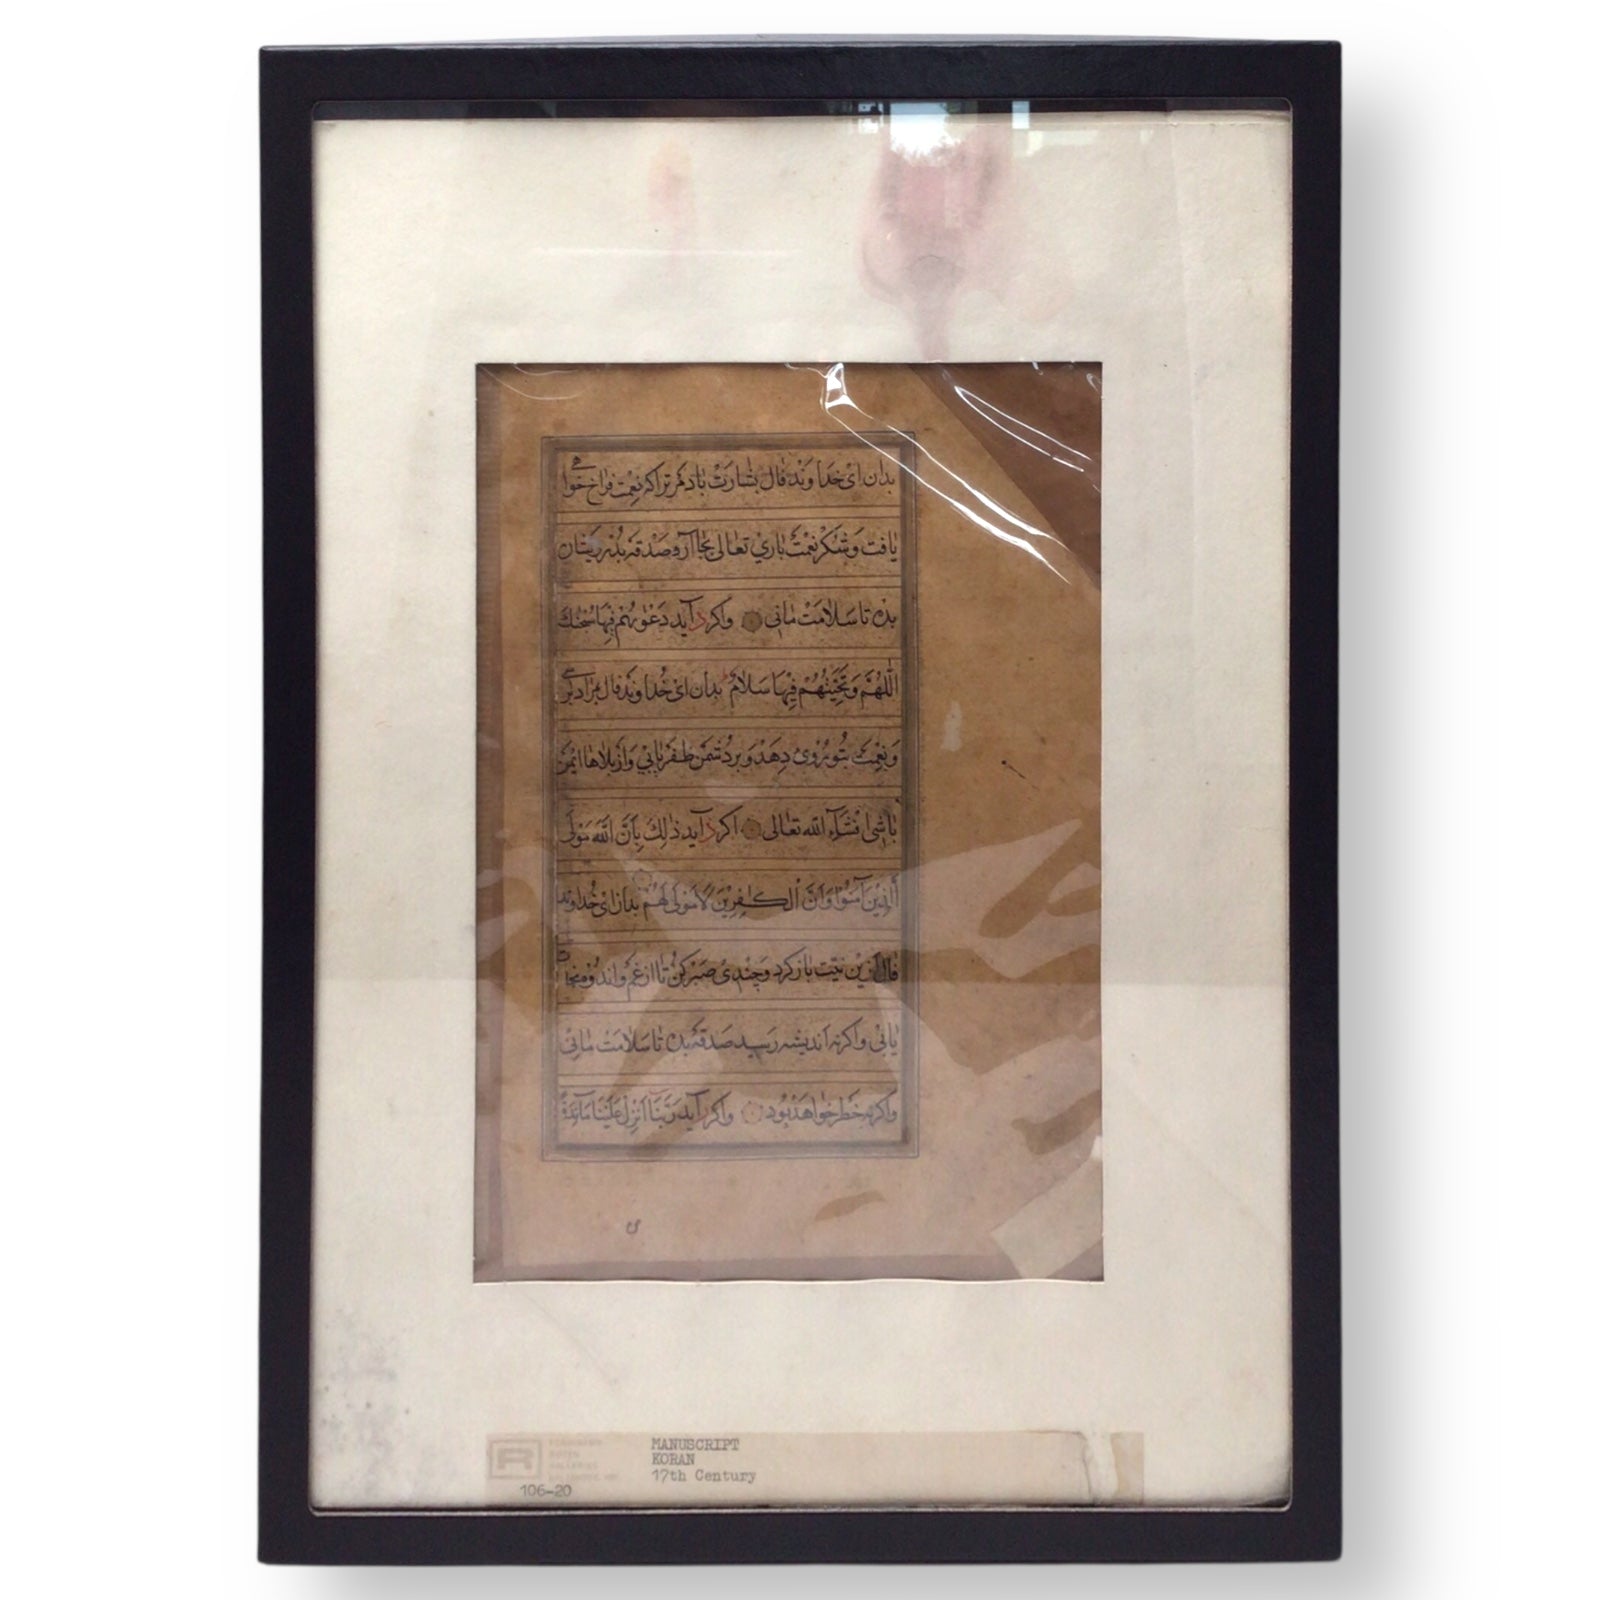 بدان ای خداوند فال بشارت باد مر ترا که نعمت فراخ خواهی
یافت وشکر نعمت باری تعالی بجا آر و صدقه بدرویشان
بده تا سلامت مانی واکر د آید دعوٰیهم فیها سبحنك
اللهم وتحیتهم فیها سلام بدان ای خداوند فال مراد
ونعمت وروزی دهد وبر دشمن ظفر یابی واز بلاها ایمن
باشی انشآء الله تعالی اکر د آید ذلك بان الله مولی
الذین آمنوا وان الکٰفرین لا مولی لهم بدان ای خداوند
فال ازین نیت باز کرد وچندی صبر کن تا از غم واندوه نجات
یابی واکر نه اندیشه رسید صدقه بده تا سلامت مانی
واکر نه خطر خواهد بود واکر د آید ربنا انزل علینا مآئدة
MANUSCRIPT
KORAN
17th Century
R
GALLERIES
106-20